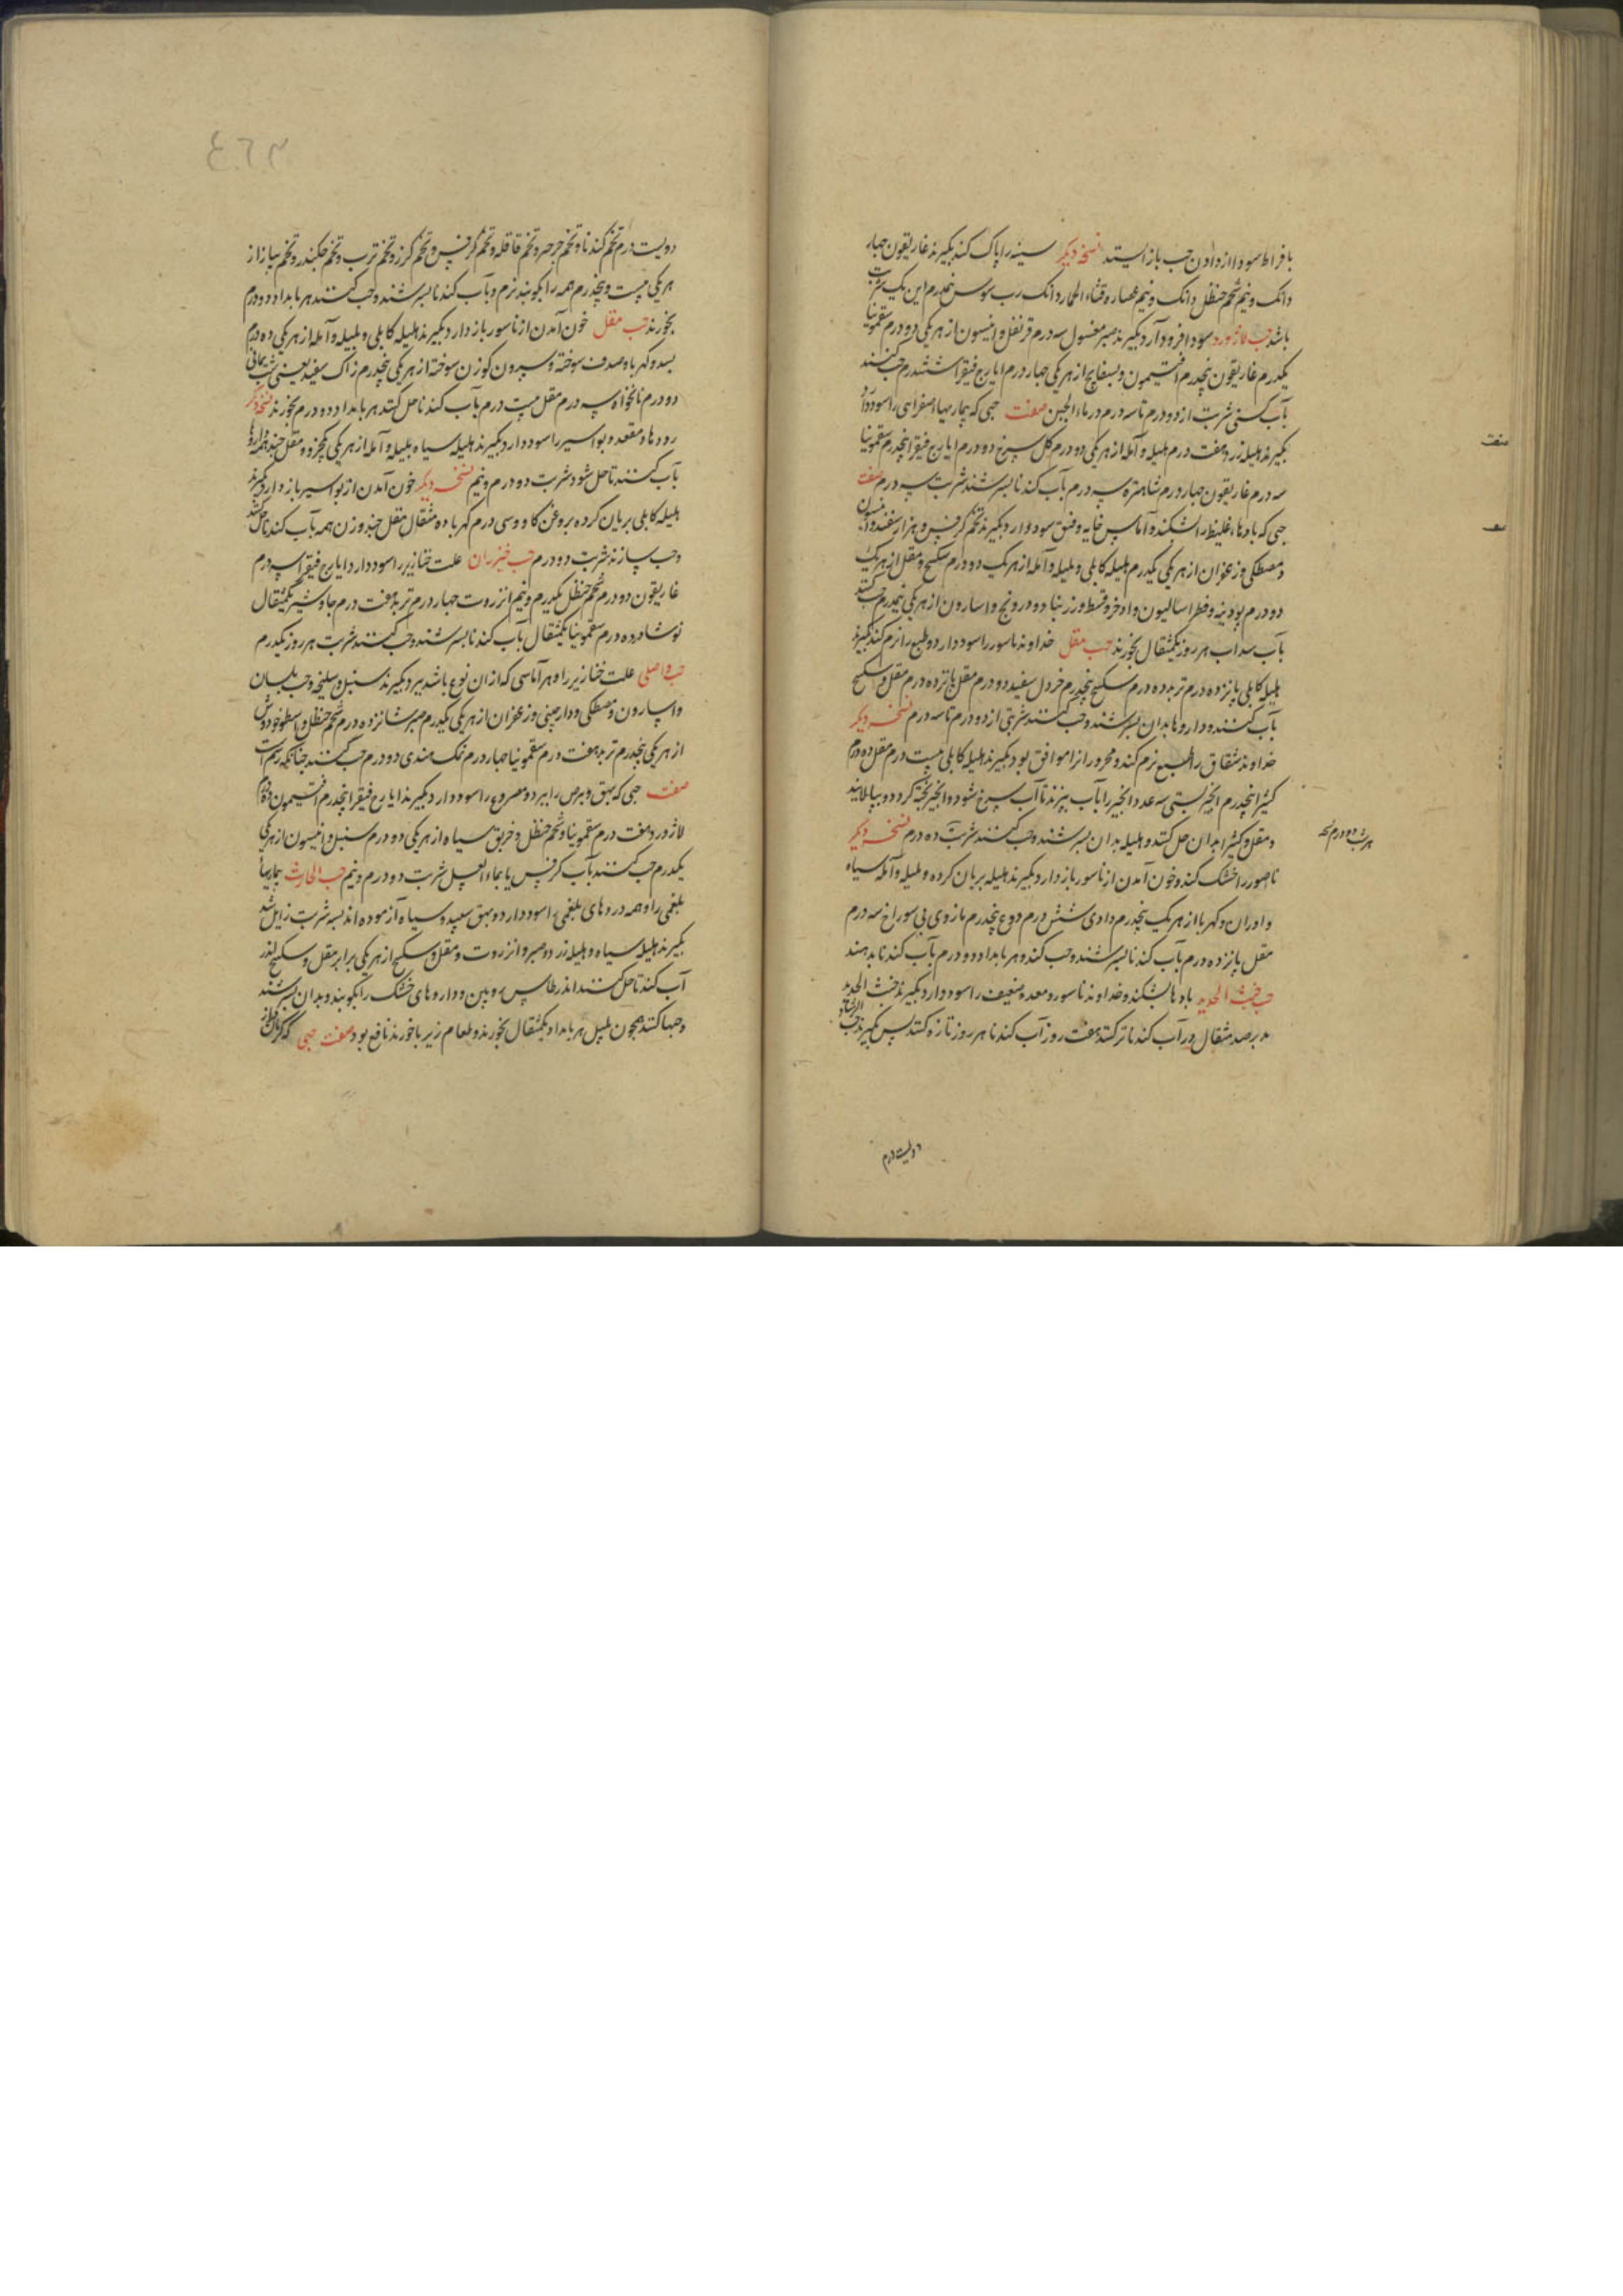 بافراط سودا از دادن حب باز ایستد نسخه دیکر سینه را پاک کند بکیرند غاریقون چهار
دانک و نیم شحم حنظل دانک و نیم عصاره قثاء الحمار دانک رب سوس نیمدرم این یک شربت
باشد حب لاژورد سودا فرود آرد بکیرند صبر مغسول سه درم قرنفل و انیسون از هر یکی دو درم سقمونیا
یکدرم غاریقون پنجدرم افتیمون و بسفایج از هر یکی چهار درم ایارج فیقرا ششدرم حب کنند
بآب کسنی شربت از دو درم تا سه درم در ماء الجبن صفت حبی که بیماریهاء صفراسی را سود دارد
بکیرند هلیله زرد هفت درم هلیله و آمله از هر یکی دو درم کل سرخ دو درم ایارج فیقرا پنجدرم سقمونیا
سه درم غاریقون چهار درم شاهتره سه درم بآب کندنا بسرشند شربت سه درم صفت
حبی که بادهاء غلیظ را بشکند و آماس خایه و فتق سود دارد بکیرند تخم کرفس و هزار سفند و انیسون
و مصطکی و زعفران از هر یکی یکدرم هلیله کابلی و بلیله و آمله از هر یک دو درم سکبینج و مقل از هر یک
دو درم پودینه و فطراسالیون و اذخر و قسط و زرنباد و درونج و اسارون از هر یکی نیمدرم حب کنند
بآب سداب هر روز یکمثقال بخورند حب مقل خداوند ناسور را سود دارد و طبع را نرم کند بکیرند
هلیله کابلی پانزده درم تربد ده درم سکبینج پنجدرم خردل سفید دو درم مقل پانزده درم مقل و سکبینج
بآب کنند و داروها بدان بسرشند و حب کنند شربتی از دو درم تا سه درم نسخه دیکر
خداوند شقاق را طبع نرم کند و محرور را موافق بود بکیرند هلیله کابلی بیست درم مقل ده درم
کثیرا پنجدرم انجیر بستی سه عدد انجیر را بآب بپزند تا آب سرخ شود و انجیر پخته کردد و بپالایند
و مقل و کثیرا بدان حل کنند و هلیله بدان بسرشند و حب کنند شربت ده درم نسخه دیکر
ناصور را خشک کند و خون آمدن از ناسور باز دارد بکیرند هلیله بریان کرده و بلیله و آمله سیاه
و اوران و کهربا از هر یک پنجدرم دادی شش درم دوع پنجدرم مازوی بی سوراخ سه درم
مقل پانزده درم بآب کندنا بسرشند و حب کنند و هر بامداد دو درم بآب کندنا بدهند
حب خبث الحدید بادها بشکند و خداوند ناسور و معده ضعیف را سود دارد بکیرند خبث الحدید
مدبر صد مثقال در آب کندنا تر کنند هفت روز آب کندنا هر روز تازه کنند پس بکیرند حب الرشاد
دویست درم
دویست درم تخم کندنا و تخم جرجر و تخم قاقله و تخم کرفس و تخم کزر و تخم ترب و تخم چکندر و تخم پیاز از
هر یکی بیست و پنجدرم همه را بکوبند نرم و بآب کندنا بسرشند و حب کنند هر بامداد دو درم
بخورند حب مقل خون آمدن از ناسور باز دارد بکیرند هلیله کابلی و بلیله و آمله از هر یکی ده درم
بسد و کهربا و صدف سوخته و سرون کوزن سوخته از هر یکی پنجدرم زاک سفید یعنی شب یمانی
دو درم نانخواه سه درم مقل بیست درم بآب کندنا حل کنند هر بامداد دو درم بخورند نسخه دیکر
رودها و مقعد و بواسیر را سود دارد بکیرند هلیله سیاه بلیله و آمله از هر یکی یکجزو و مقل چند همه داروها
بآب کنند تا حل شود شربت دو درم و نیم نسخه دیکر خون آمدن از بواسیر باز دارد بکیرند
هلیله کابلی بریان کرده بروغن کاو و سی درم کهربا ده مثقال مقل چند وزن همه بآب کندنا حل کنند
و حب سازند شربت دو درم حب خیزران علت خنازیر را سود دارد ایارج فیقرا سه درم
غاریقون دو درم شحم حنظل یکدرم و نیم انزروت چهار درم تربد هفت درم جاوشیر یکمثقال
نوشادر ده درم سقمونیا یکمثقال بآب کندنا بسرشند و حب کنند شربت هر روز یکدرم
حب واصلی علت خنازیر را و هر آماسی که از ان نوع باشد ببرد بکیرند سنبل و سلیخه و حب بلسان
و اسارون و مصطکی و دارچینی و زعفران از هر یکی یکدرم صبر شانزده درم شحم حنظل و اسطوخودوس
از هر یکی پنجدرم تربد هفت درم سقمونیا چهار درم نمک هندی دو درم حب کنند چنانکه رسم است
صفت حبی که بهق و برص را ببرد و مصروع را سود دارد بکیرند ایارج فیقرا پنجدرم افتیمون ده درم
لاژورد هفت درم سقمونیا و شحم حنظل و خربق سیاه از هر یکی دو درم سنبل و انیسون از هر یکی
یکدرم حب کنند بآب کرفس یا بماء العسل شربت دو درم و نیم حب الحارث بیماریهاء
بلغمی را و همه دردهای بلغمی را سود دارد و بهق سپید و سیاه آزموده اند بسه شربت زایل شد
بکیرند هلیله سیاه و هلیله زرد و صبر و انزروت و مقل و سکبینج از هر یکی برابر مقل و سکبینج اندر
آب کندنا حل کنند اندر طاس رویین و داروهای خشک را بکوبند و بدان بسرشند
و حبها کنند همچون پلپل هر بامداد یکمثقال بخورند و طعام زیربا خورند نافع بود صفت حبی که